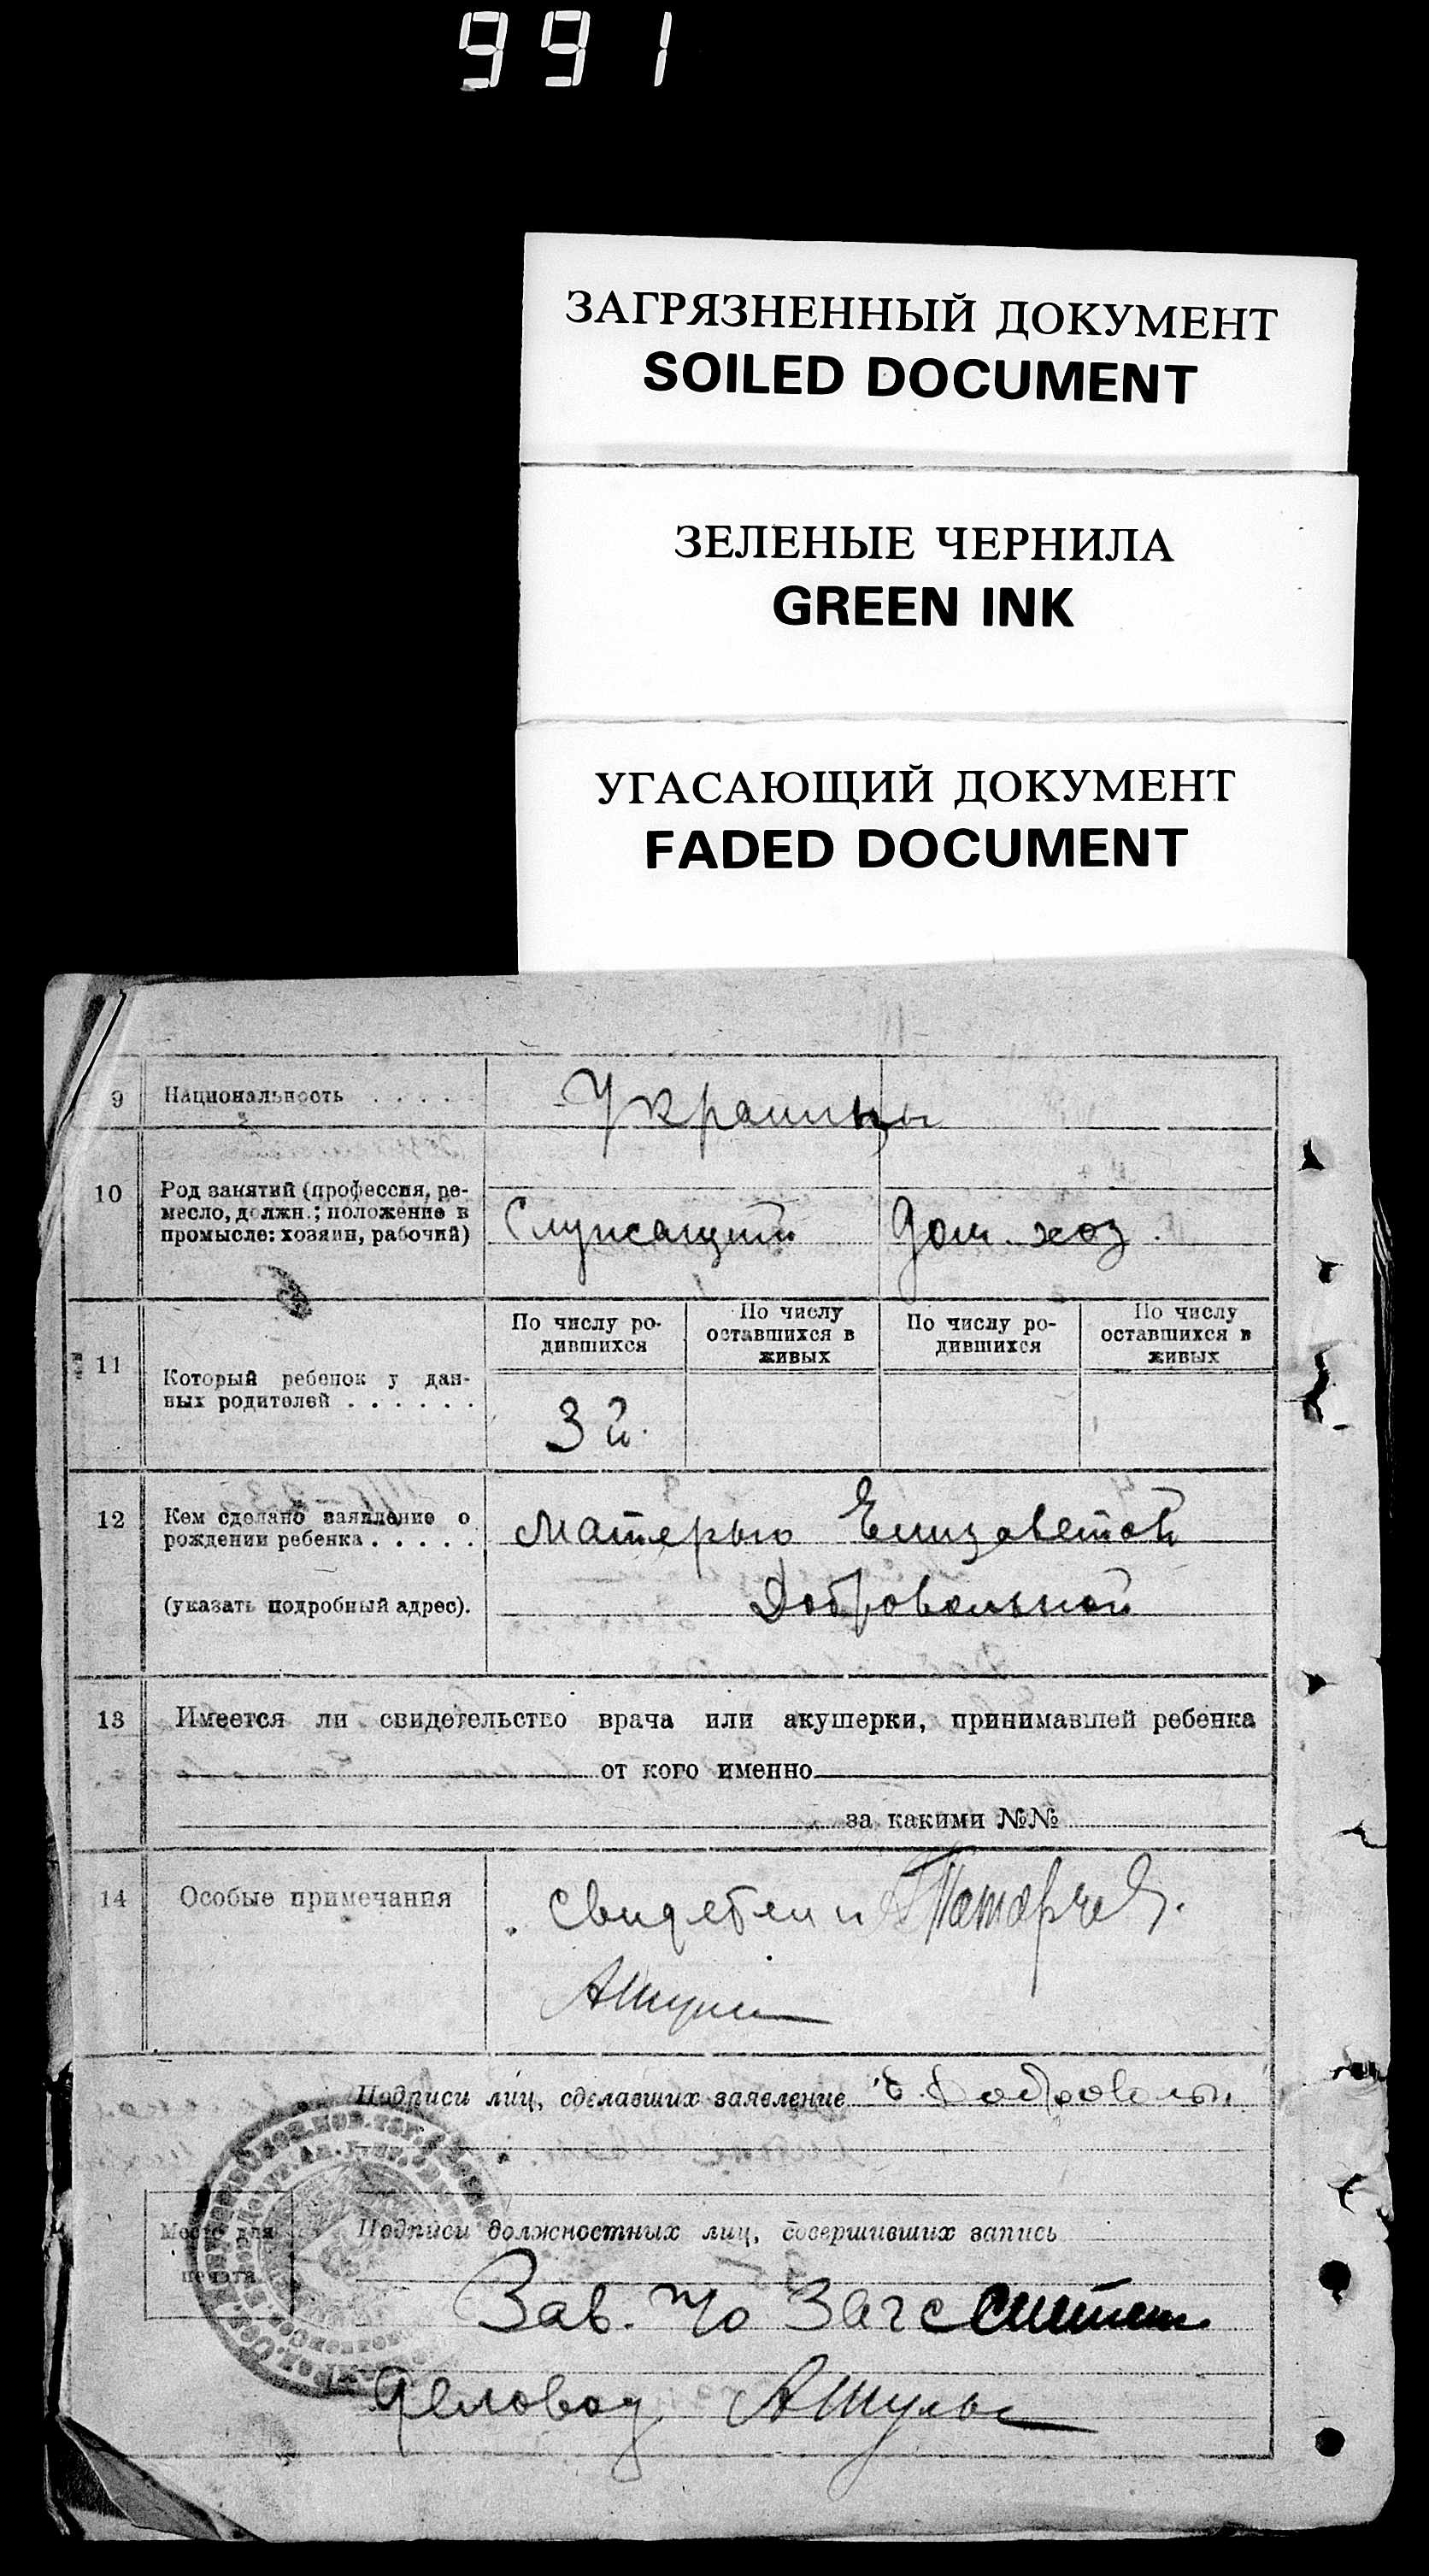 991
ЗАГРЯЗНЕННЫЙ ДОКУМЕНТ
SOILED DOCUMENT
ЗЕЛЕНЫЕ ЧЕРНИЛА
GREEN INK
УГАСАЮЩИЙ ДОКУМЕНТ
FADED DOCUMENT
9 Национальность . . . . Украинцы
10 Род занятий (профессия, ре-
месло, должн.; положение в
промысле: хозяин, рабочий)
Служащий Дом. хоз.
11 Который ребенок у дан-
ных родителей . . . . . .
По числу ро-
дившихся
По числу
оставшихся в
живых
По числу ро-
дившихся
По числу
оставшихся в
живых
3 й.
12 Кем сделано заявление о
рождении ребенка . . . . .
(указать подробный адрес).
Матерью Елизаветой
Добровольной
13 Имеется ли свидетельство врача или акушерки, принимавшей ребенка
от кого именно
за какими №№
14 Особые примечания
Свидетели
Подписи лиц, сделавших заявление
Место для
печати
Подписи должностных лиц, совершивших запись
Зав. п/о Загс
Деловод